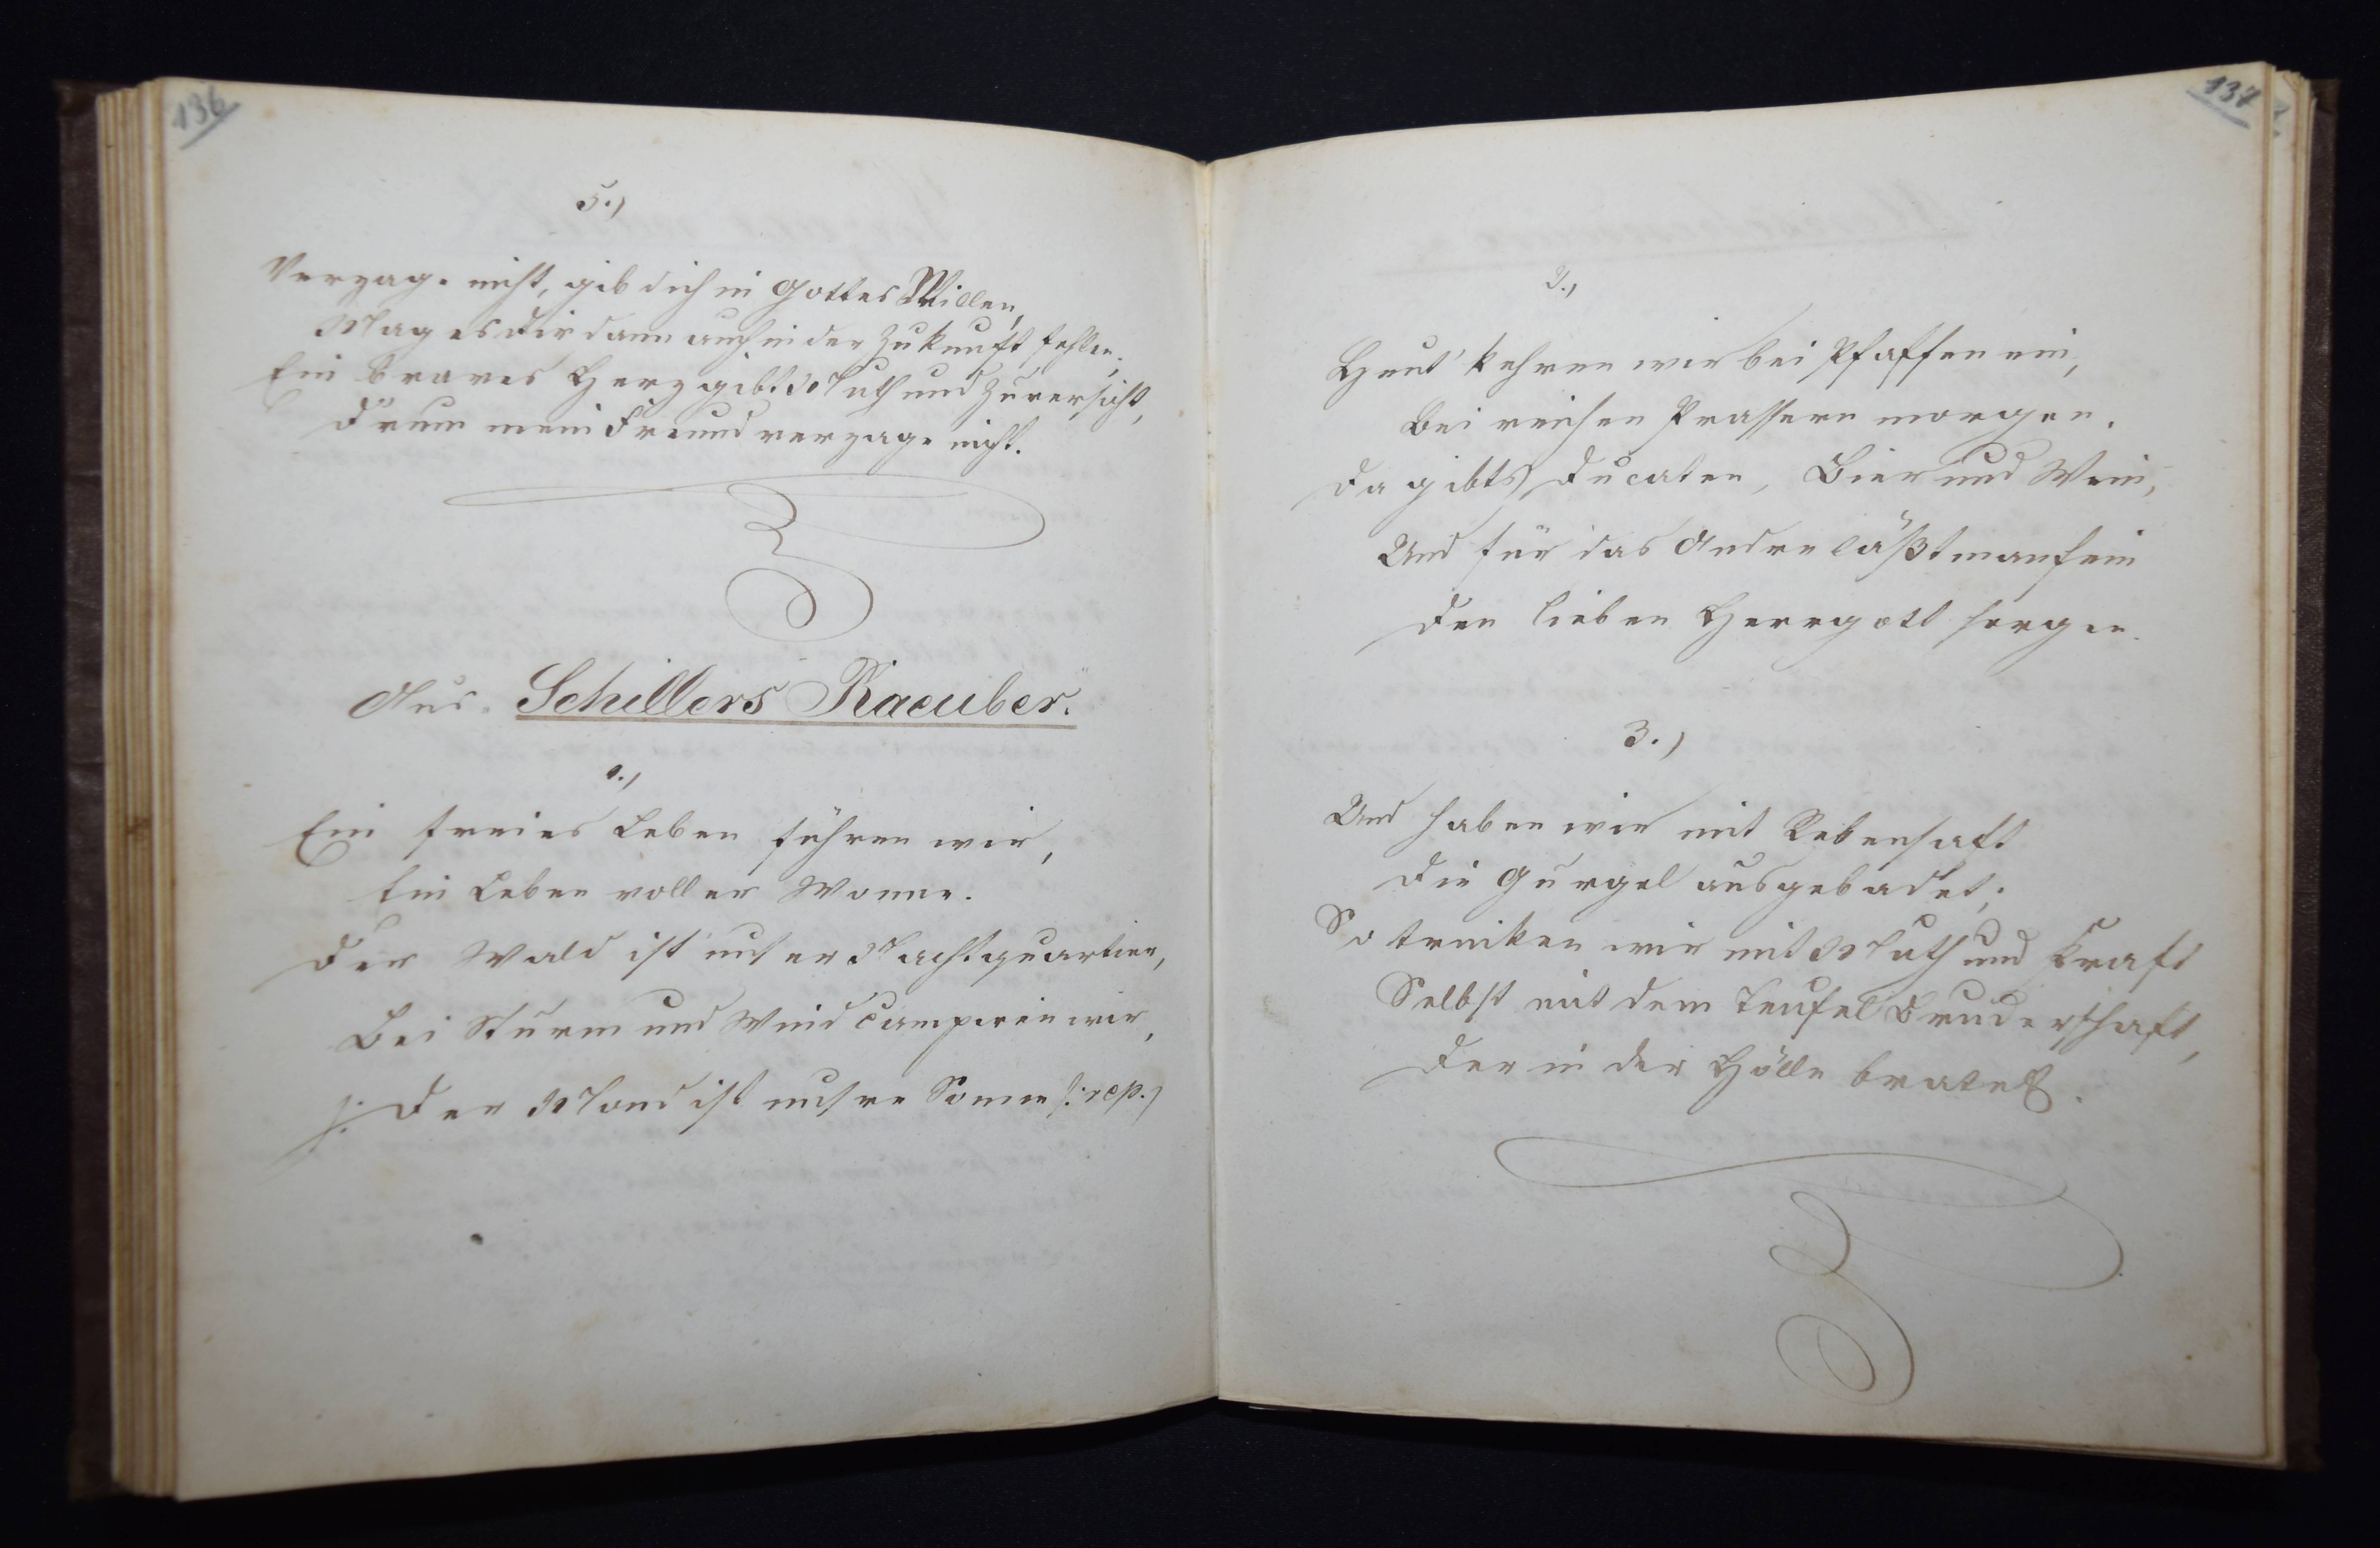 136
5.)
Verzage nicht, gib dich in Gottes Willen,
Mag es dir dann auch in der Zukunft fehlen.
Ein braves Herz gibt Muth und Zuversicht,
Drum mein Freund verzage nicht.
Aus. Schillers Raeuber.
1.)
Ein freies Leben führen wir,
Ein Leben voller Wonne.
Der Wald ist unser Nachtquartier,
Bei Sturm und Wind campiren wir,
/: Der Mond ist unsre Sonne /: rep.)
137
2.)
Heut' kehren wir bei Pfaffen ein,
Bei reichen Prassern morgen.
Da gibts Ducaten, Bier und Wein,
Und für das Andre läßt man fein
Den lieben Herrgott sorgen.
3.)
Und haben wir mit Rebensaft
Die Gurgel ausgebadet;
So trinken wir mit Muth und Kraft
Selbst mit dem Teufel Bruderschaft,
Der in der Hölle bratet.